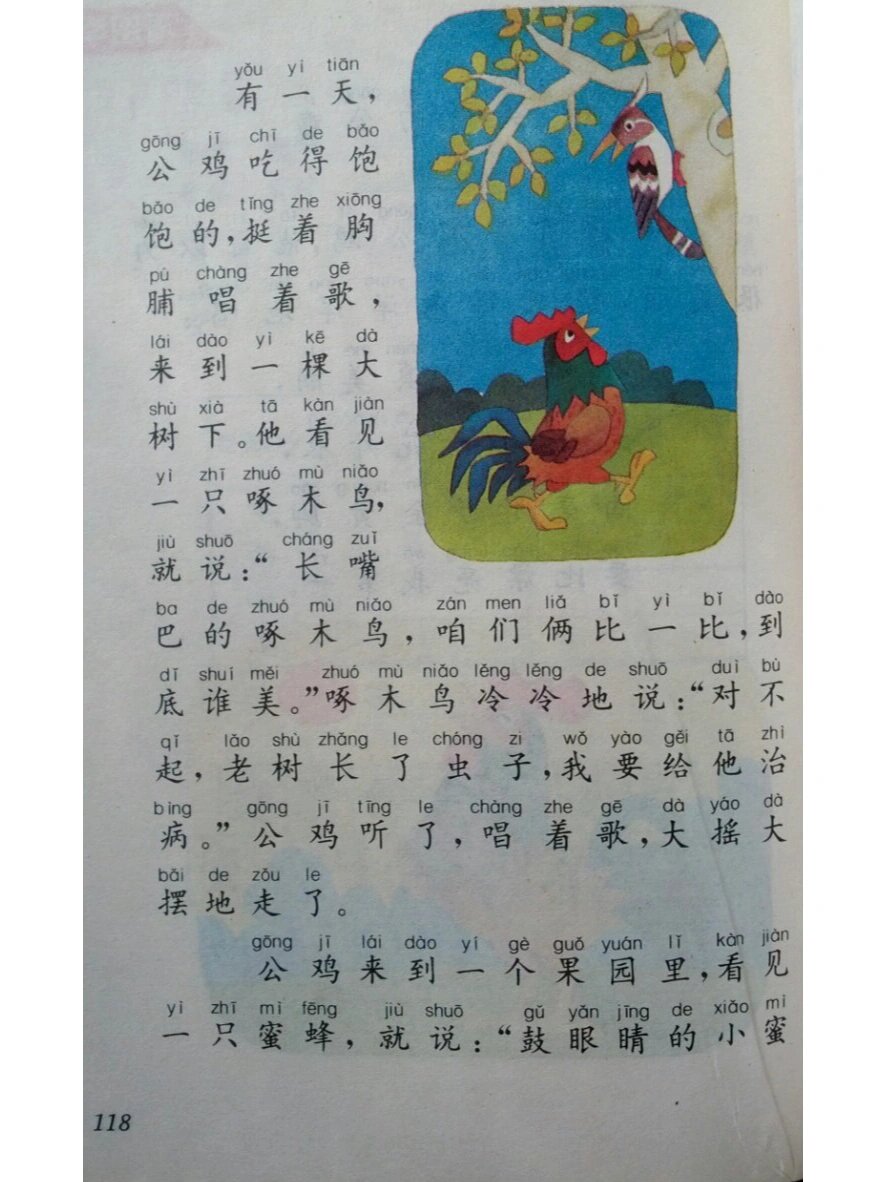 yǒu yì tiān
有一天，
gōng jī chī de bǎo
公鸡吃得饱
bǎo de tǐng zhe xiōng
饱的，挺着胸
pú chàng zhe gē
脯唱着歌，
lái dào yì kē dà
来到一棵大
shù xià tā kàn jiàn
树下。他看见
yì zhī zhuó mù niǎo
一只啄木鸟，
jiù shuō cháng zuǐ
就说：“长嘴
ba de zhuó mù niǎo zán men liǎ bǐ yì bǐ dào
巴的啄木鸟，咱们俩比一比，到
dǐ shuí měi zhuó mù niǎo lěng lěng de shuō duì bù
底谁美。”啄木鸟冷冷地说：“对不
qǐ lǎo shù zhǎng le chóng zi wǒ yào gěi tā zhì
起，老树长了虫子，我要给他治
bìng gōng jī tīng le chàng zhe gē dà yáo dà
病。”公鸡听了，唱着歌，大摇大
bǎi de zǒu le
摆地走了。
gōng jī lái dào yí gè guǒ yuán lǐ kàn jiàn
公鸡来到一个果园里，看见
yì zhī mì fēng jiù shuō gǔ yǎn jīng de xiǎo mì
一只蜜蜂，就说：“鼓眼睛的小蜜
118